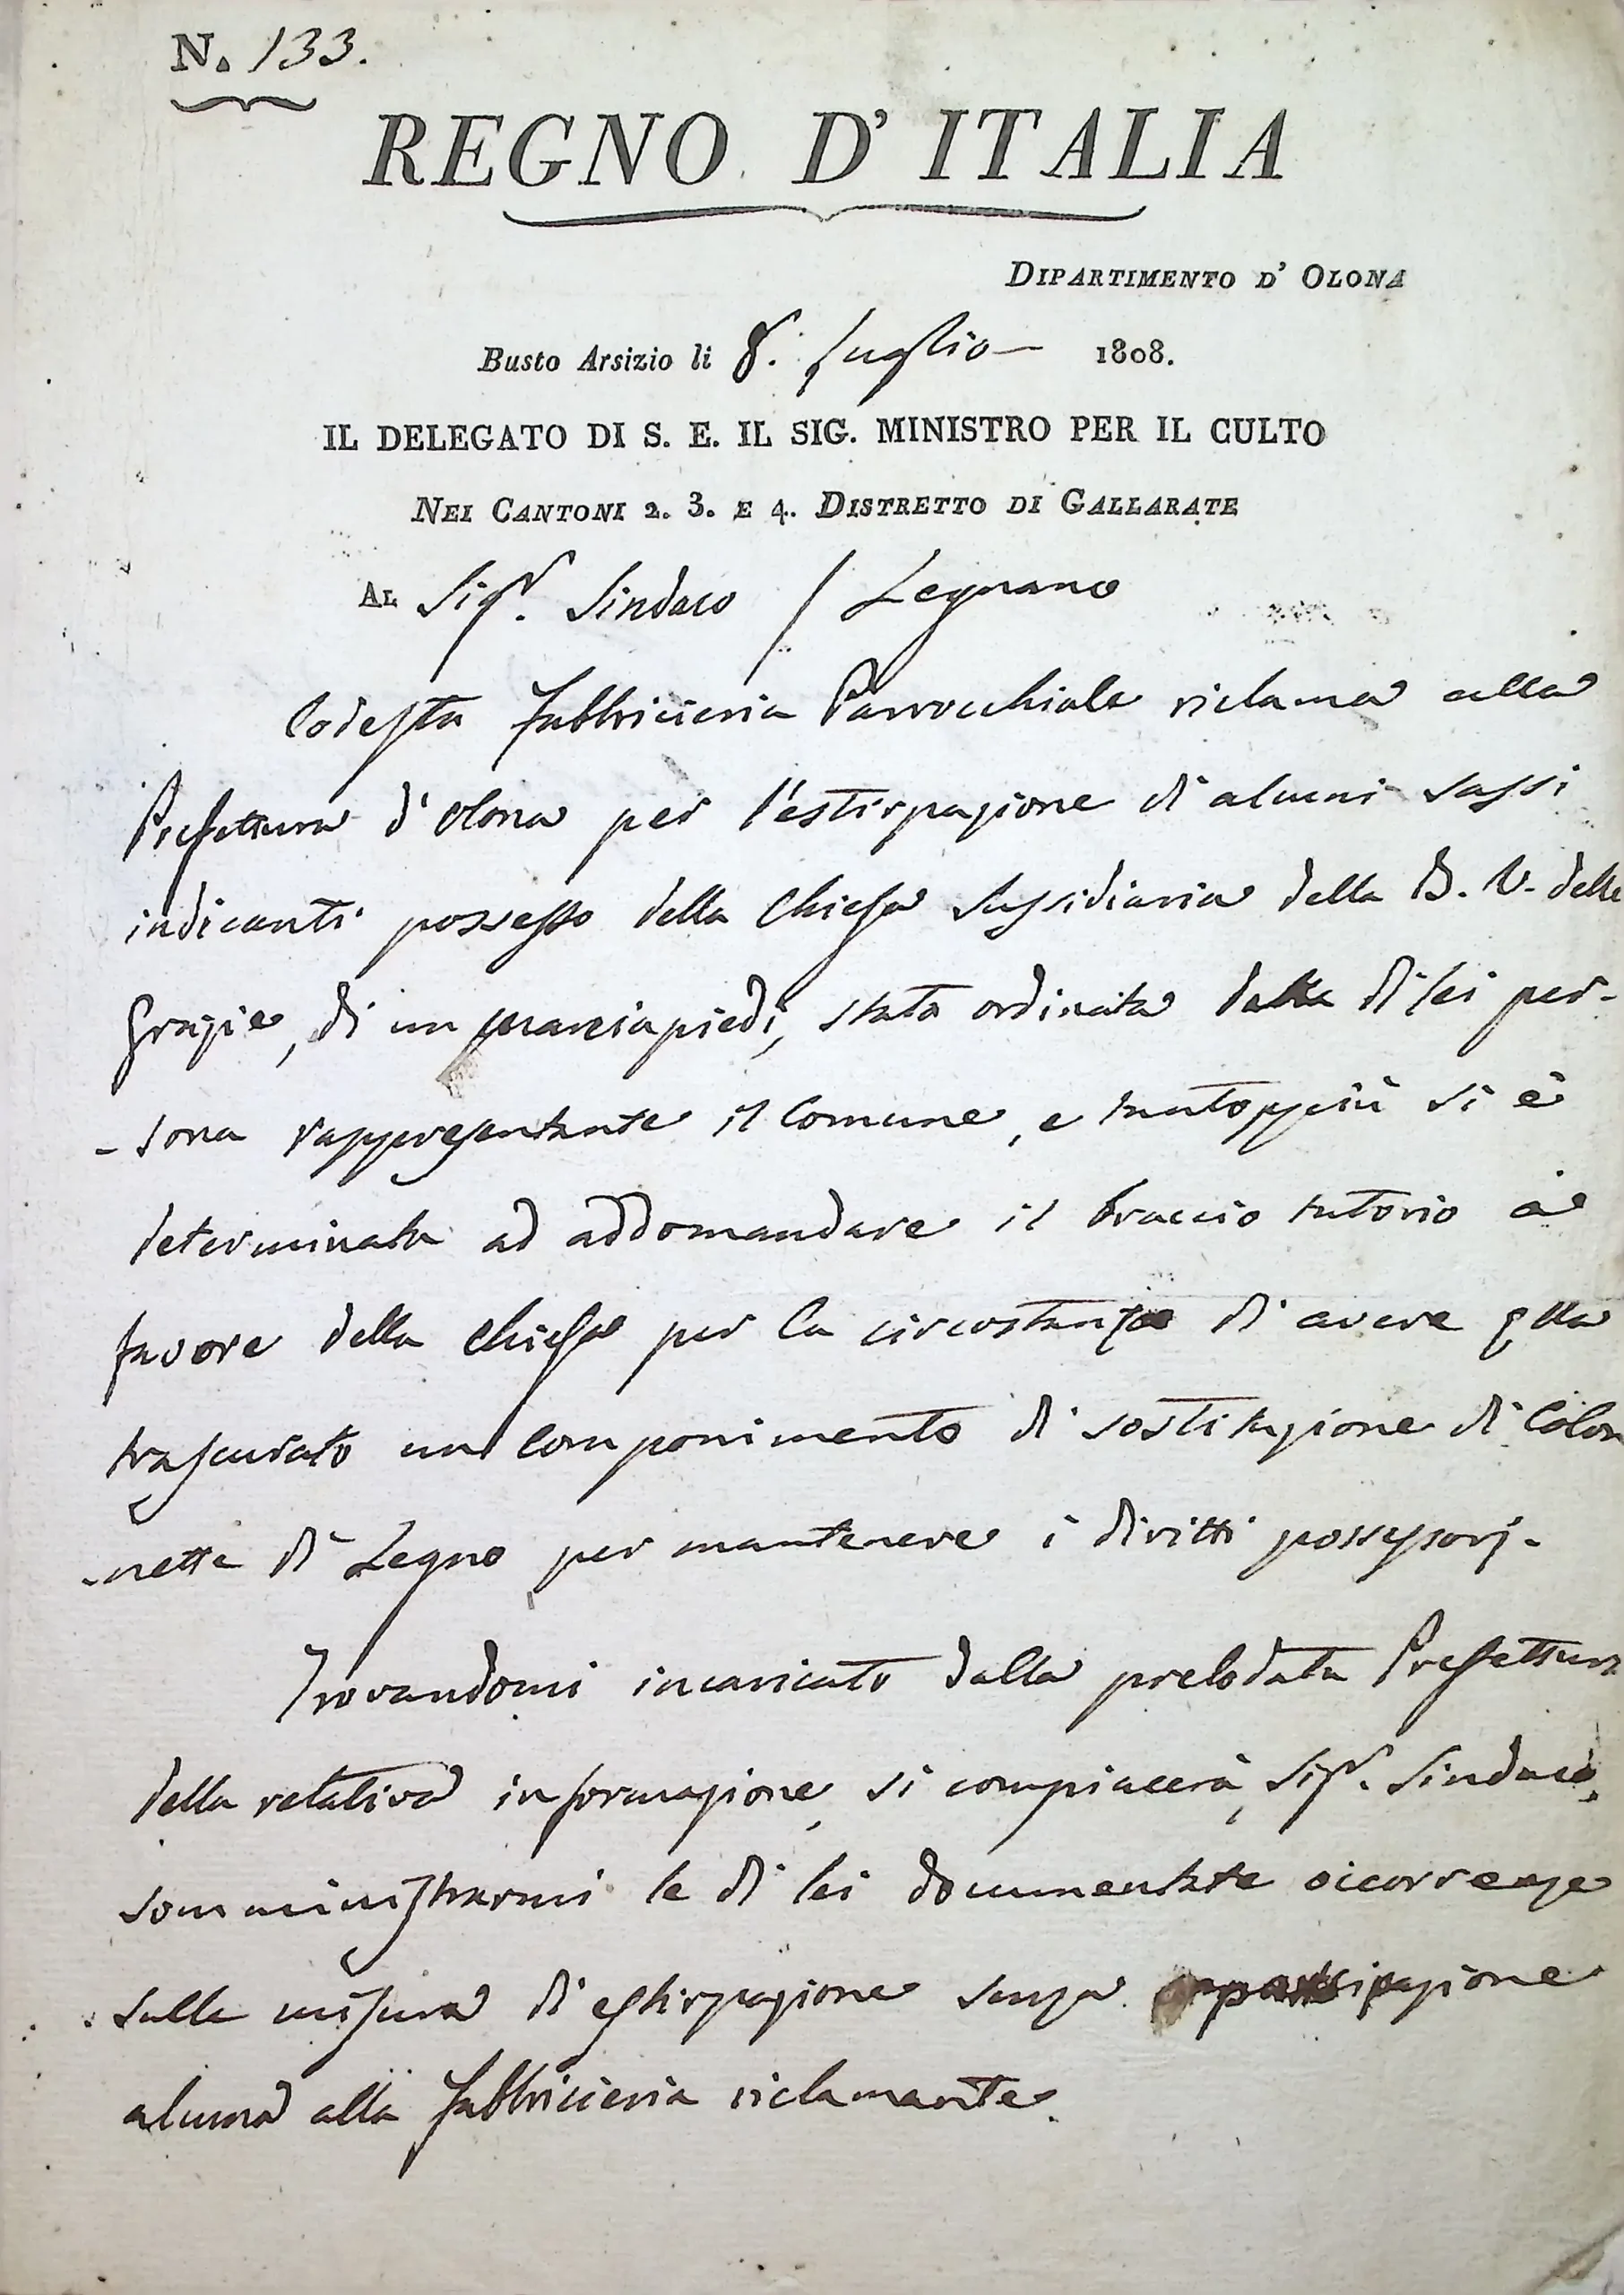 N. 133.
REGNO D' ITALIA
DIPARTIMENTO D' OLONA
Busto Arsizio li 8. Luglio 1808.
IL DELEGATO DI S. E. IL SIG. MINISTRO PER IL CULTO
NEI CANTONI 2. 3. E 4. DISTRETTO DI GALLARATE
AL Sigr. Sindaco / Legnano
Codesta Fabbricieria Parrocchiale riclama alla
Prefettura d'Olona per l'estirpazione di alcuni sassi
indicanti possesso della Chiesa Sussidiaria della B. V. delle
Grazie, di un marciapiedi, stata ordinata dalla di lei per-
-sona rappresentante il Comune, e tantoppiù si è
determinata ad addomandare il braccio tutorio a
favore della Chiesa per la circostanza di avere qlla
trascurato un componimento di sostituzione di Colon
-nette di Legno per mantenere i diritti possessorj.
Trovandomi incaricato dalla prelodata Prefettura
della relativa informazione, si compiacerà, Sigr. Sindaco,
somministrarmi le di lei documentate occorrenze
sulla misura di estirpazione senza partecipazione
alcuna alla Fabbricieria riclamante.